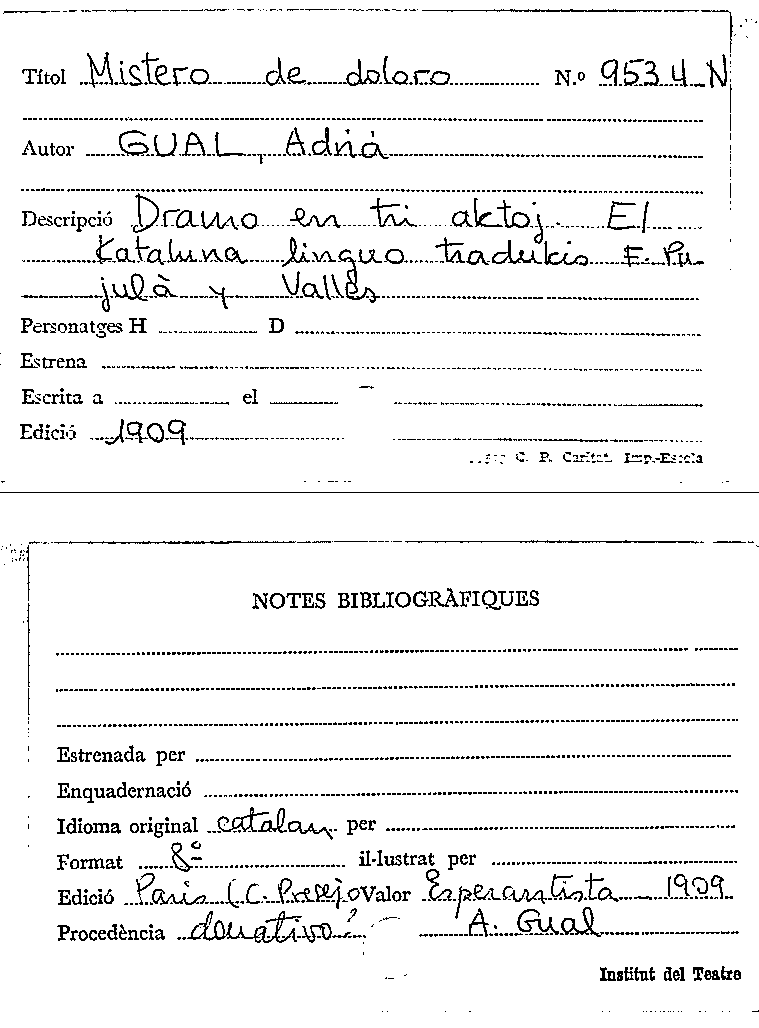 Títol Mistero de doloro N.º 9534_N
Autor GUAL, Adrià
Descripció Dramo en tri aktoj. El
Kataluna linguo tradukis F. Pu
julà y Vallès
Personatges H D
Estrena
Escrita a el
Edició 1909
C. P. Caritat. Imp.-Escola
NOTES BIBLIOGRÀFIQUES
Estrenada per
Enquadernació
Idioma original catalan per
Format 8º il·lustrat per
Edició Paris (C. Presejo Valor Esperantista 1909
Procedència donativo? A. Gual
Institut del Teatre